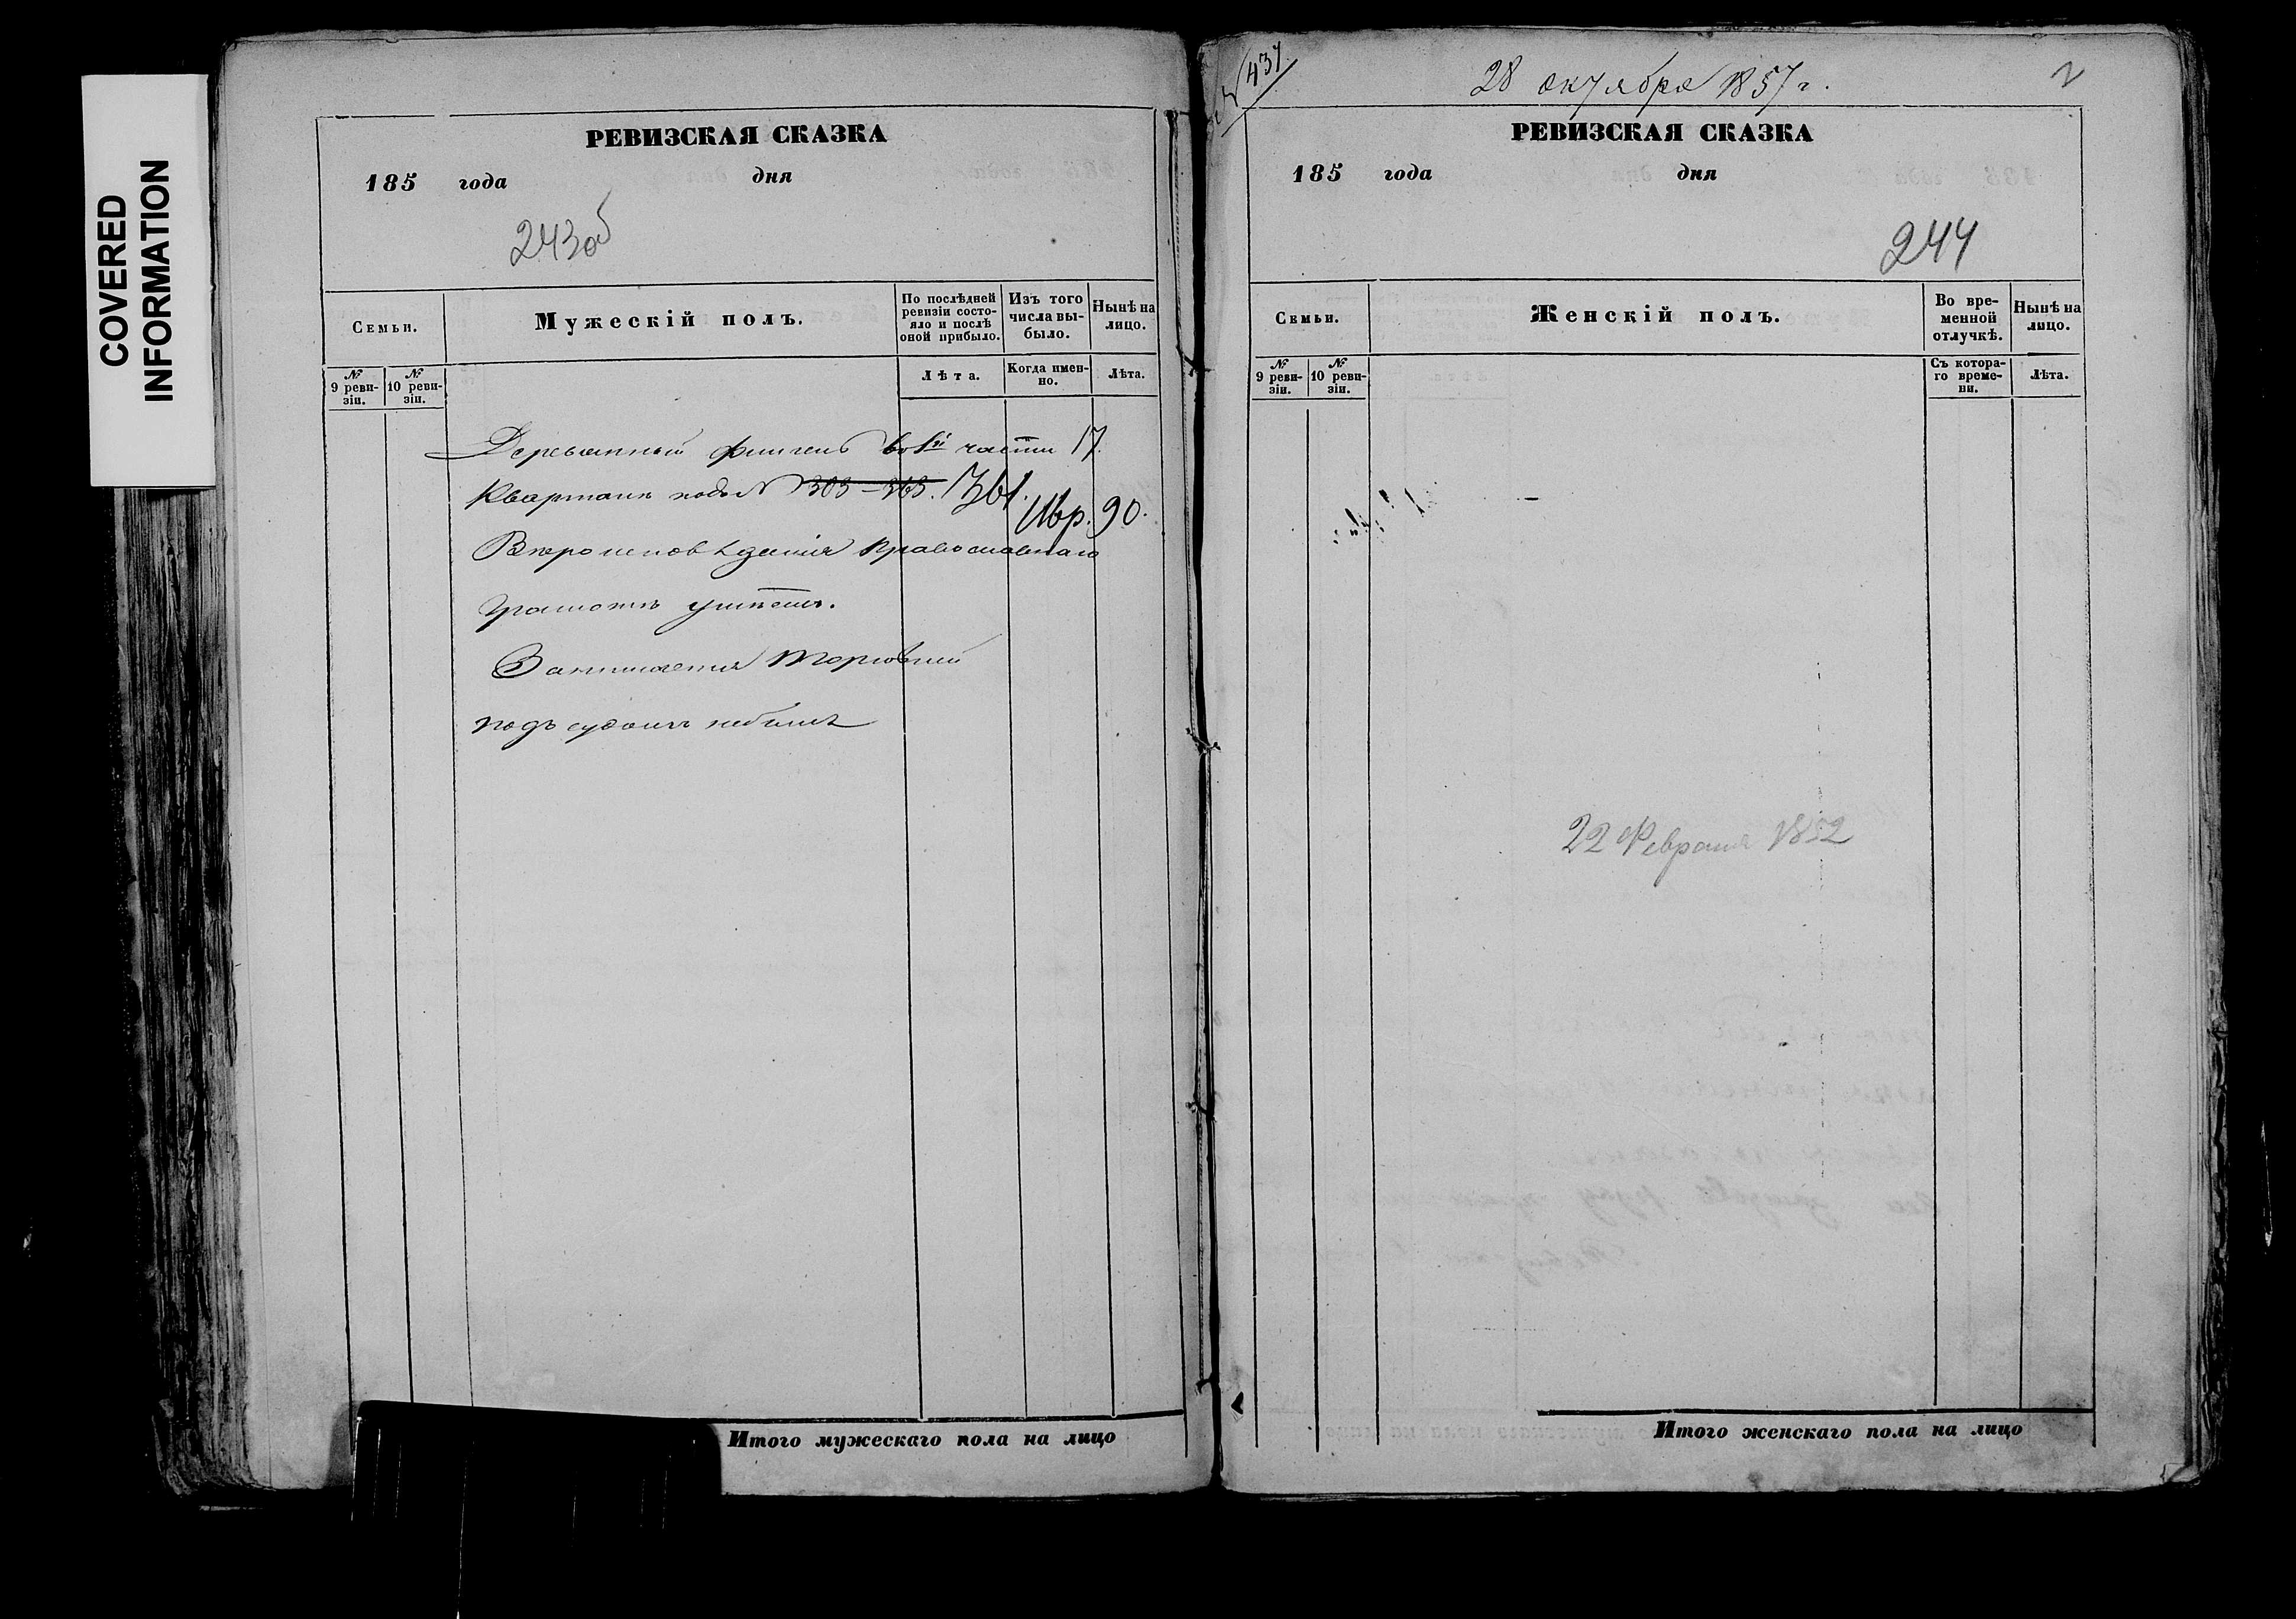 COVERED
INFORMATION
РЕВИЗСКАЯ СКАЗКА
185 года дня
243об
Семьи.
Мужескій полъ.
По послѣдней ревизіи состояло и послѣ оной прибыло.
Изъ того числа выбыло.
Нынѣ на лицо.
№ 9 ревизіи.
№ 10 ревизіи.
Лѣта.
Когда именно.
Лѣта.
Деревянный флигель во 1й части 17.
Квартала подъ № 303 – 363. 361.
90.
Вѣроисповѣданія Православнаго
Грамотѣ умѣетъ.
Занимается Торговлей
подъ судомъ небылъ
Итого мужескаго пола на лицо
437
28 октября 1857 г.
2
РЕВИЗСКАЯ СКАЗКА
185 года дня
244
Семьи.
Женскій полъ.
Во временной отлучкѣ.
Нынѣ на лицо.
№ 9 ревизіи.
№ 10 ревизіи.
Съ котораго времени.
Лѣта.
22 Февраля 1852
Итого женскаго пола на лицо